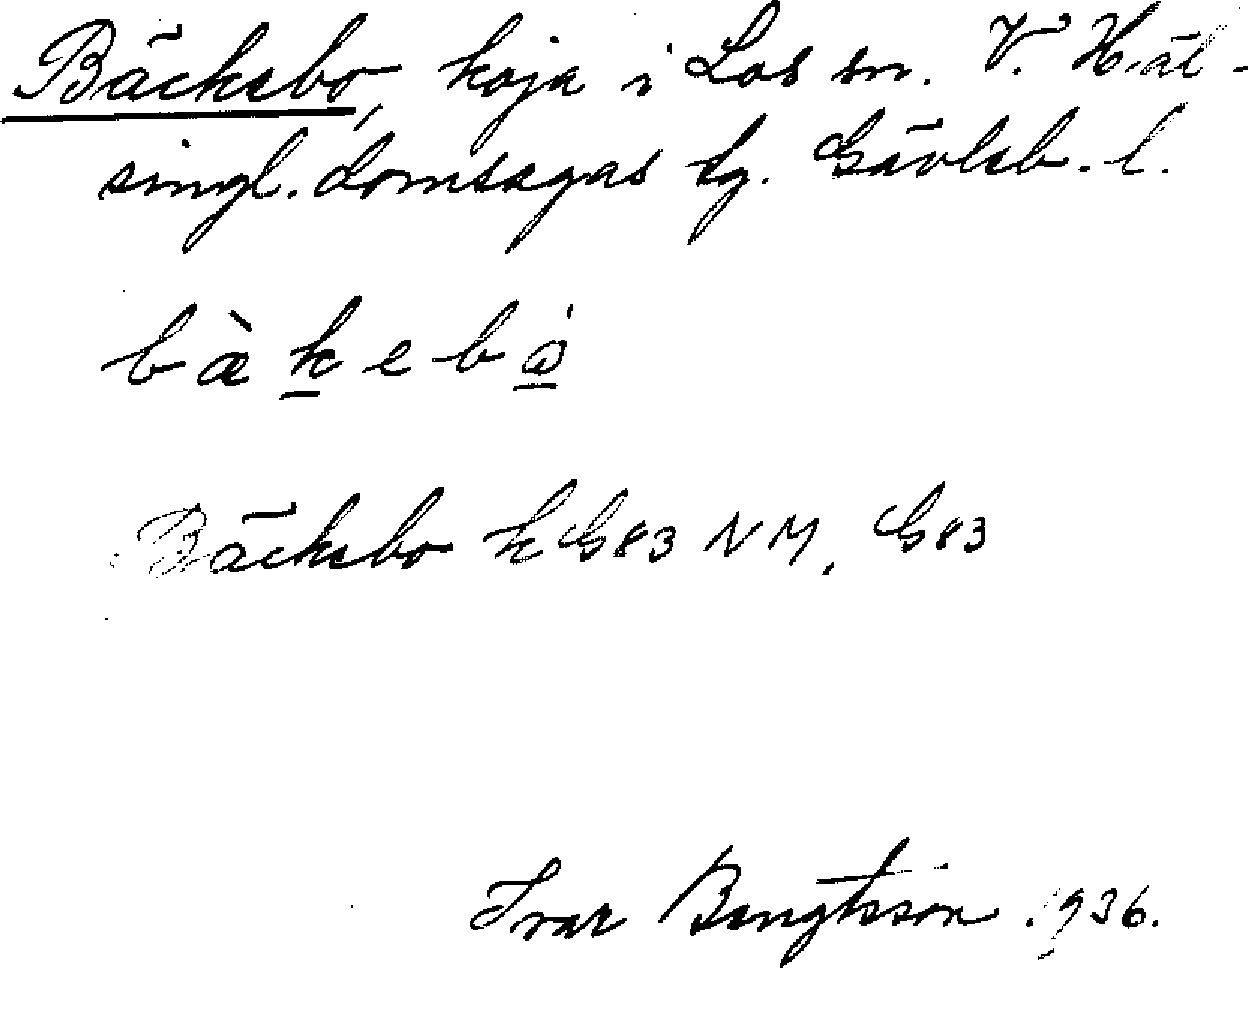 Bäcksbo, koja i Los sn. V. Häl-
singl. domsagas tg. Gävleb. l.
bæ̀kebó
Bäcksbo k G83 NM, G83
Ivar Bengtsson 1936.